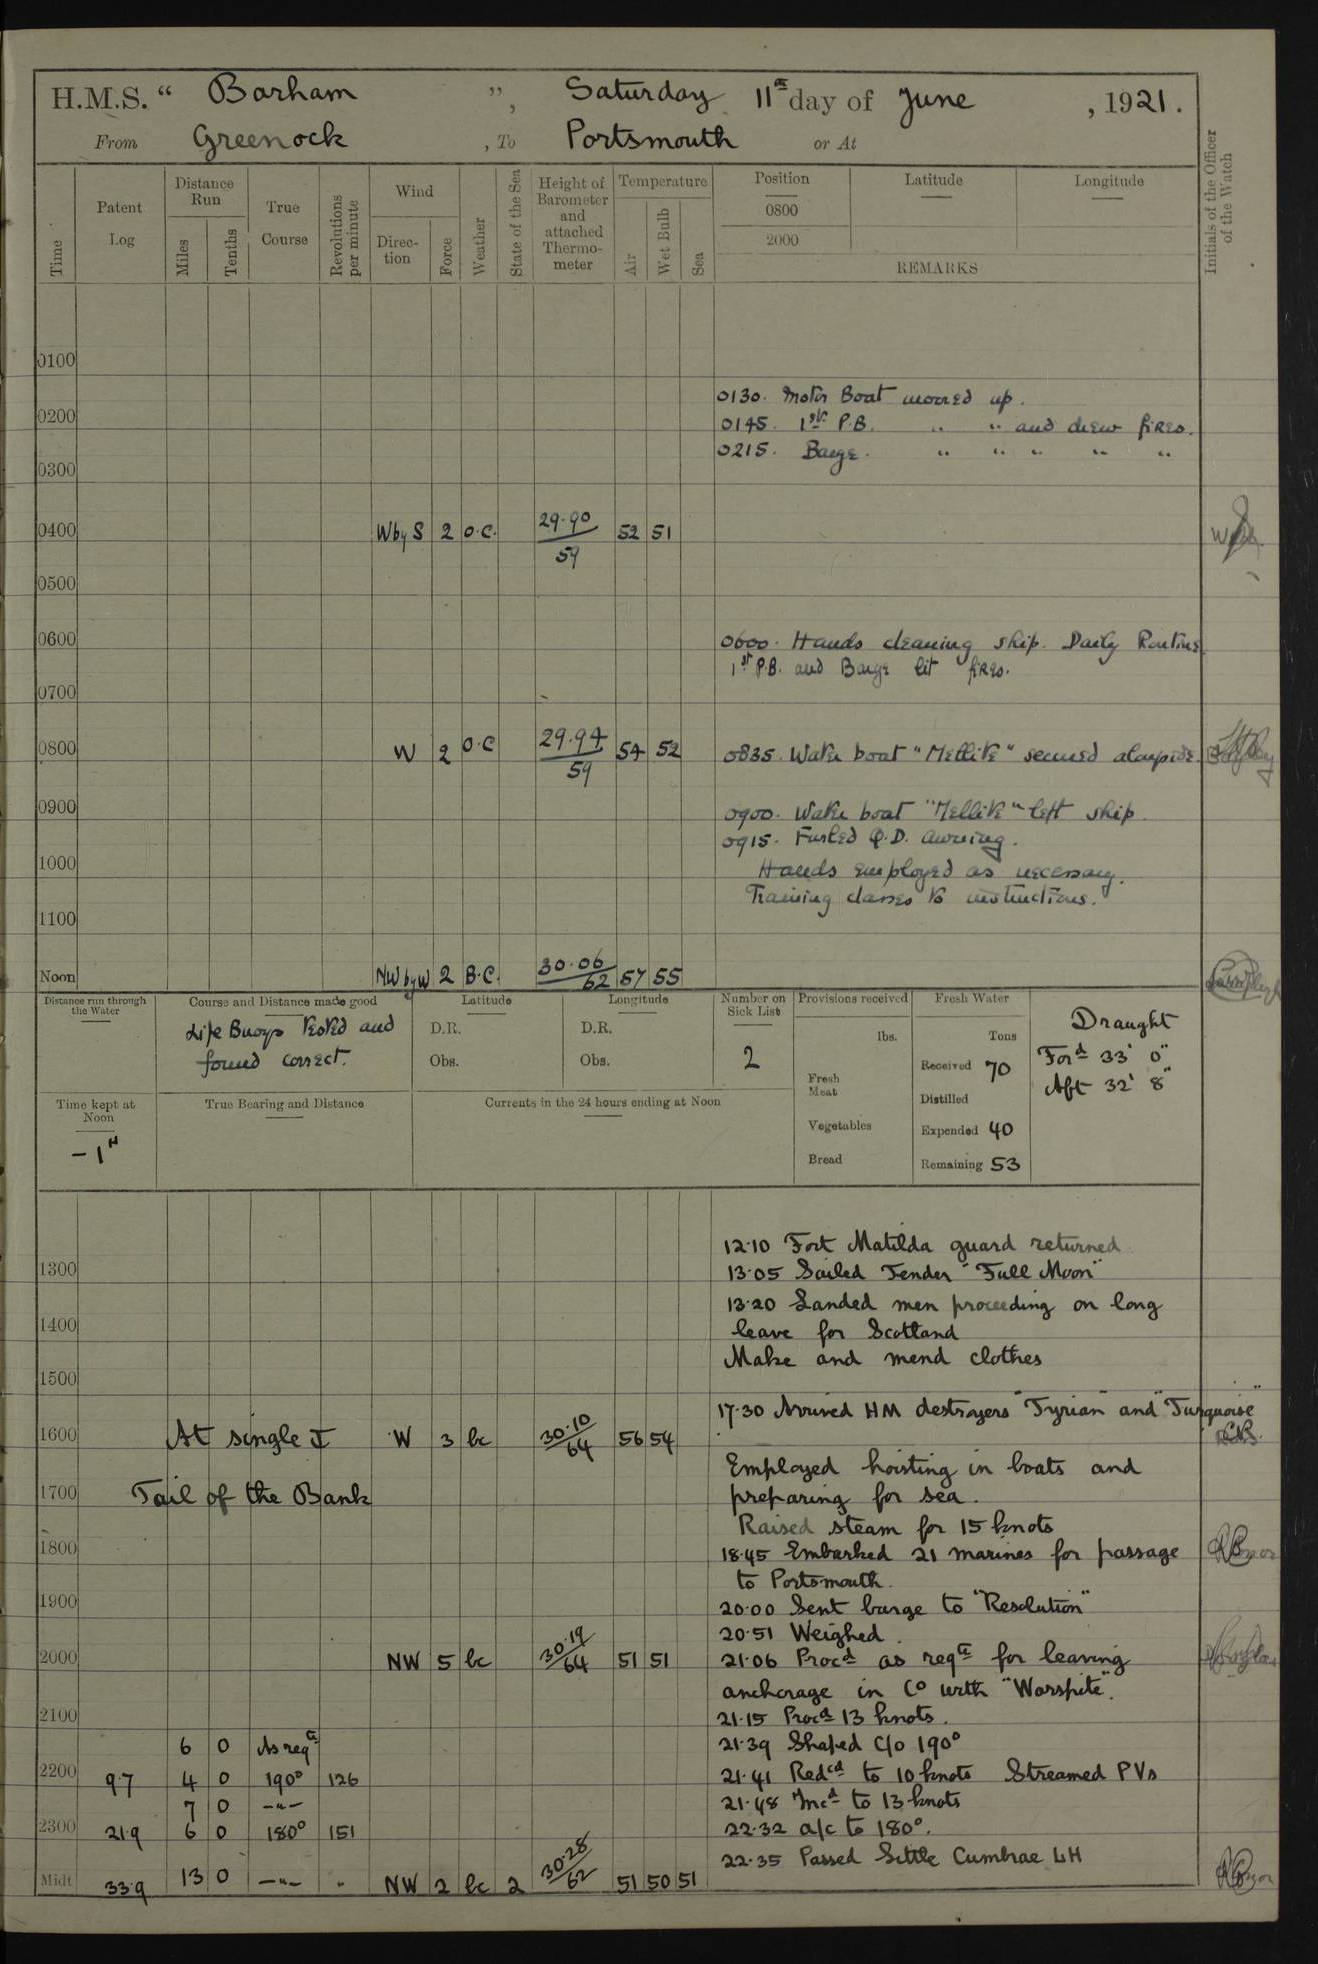 H.M.S. “ Barham ”, Saturday 11th day of June , 1921.
From Greenock , To Portsmouth or At
Time
Patent Log
Distance Run
Miles
Tenths
True Course
Revolutions per minute
Wind
Direction
Force
Weather
State of the Sea
Height of Barometer and attached Thermometer
Temperature
Air
Wet Bulb
Sea
Position
0800
2000
Latitude
Longitude
REMARKS
Initials of the Officer of the Watch
0100
0130. Motor Boat moored up.
0200
0145. 1st P.B. " " and drew fires.
0215. Barge. " " " " "
0300
0400 W by S 2 o.c. 29.90/59 52 51
0500
0600
0600. Hands cleaning ship. Daily Routine
1st P.B. and Barge lit fires.
0700
0800 W 2 o.c 29.94/59 54 52
0835. Water boat "Mellite" secured alongside.
0900
0900. Water boat "Mellite" left ship.
0915. Furled Q.D. awning.
1000
Hands employed as necessary.
Training classes to instructions.
1100
Noon NW by W 2 B.C. 30.06/62 57 55
Distance run through the Water
Course and Distance made good
Life Buoys tested and
found correct.
Latitude
D.R.
Obs.
Longitude
D.R.
Obs.
Number on Sick List
2
Provisions received
lbs.
Fresh Meat
Vegetables
Bread
Fresh Water
Tons
Received 70
Distilled
Expended 40
Remaining 53
Draught
Ford 33' 0"
Aft 32' 8"
Time kept at Noon
-1H
True Bearing and Distance
Currents in the 24 hours ending at Noon
12.10 Fort Matilda guard returned
1300
13.05 Sailed Tender "Full Moon"
13.20 Landed men proceeding on long
1400
leave for Scotland
Make and mend clothes
1500
17.30 Arrived HM destroyers "Tyrian" and "Turquoise"
1600 At single ⚓ W 3 bc 30.10/64 56 54
Employed hoisting in boats and
1700 Tail of the Bank
preparing for sea.
Raised steam for 15 knots
1800
18.45 Embarked 21 marines for passage
to Portsmouth.
1900
20.00 Sent barge to "Resolution"
20.51 Weighed.
2000 NW 5 bc 30.19/64 51 51
21.06 Procd as reqte for leaving
anchorage in Co with "Warspite".
2100
21.15 Procd 13 knots.
6 0 As reqte
21.39 Shaped C/o 190°
2200 9.7 4 0 190° 126
21.41 Redcd to 10 knots Streamed PVs
7 0 —"—
21.48 Incd to 13 knots
2300 21.9 6 0 180° 151
22.32 a/c to 180°.
22.35 Passed Little Cumbrae LH
Midt 33.9 13 0 —"— " NW 2 bc 2 30.28/62 51 50 51